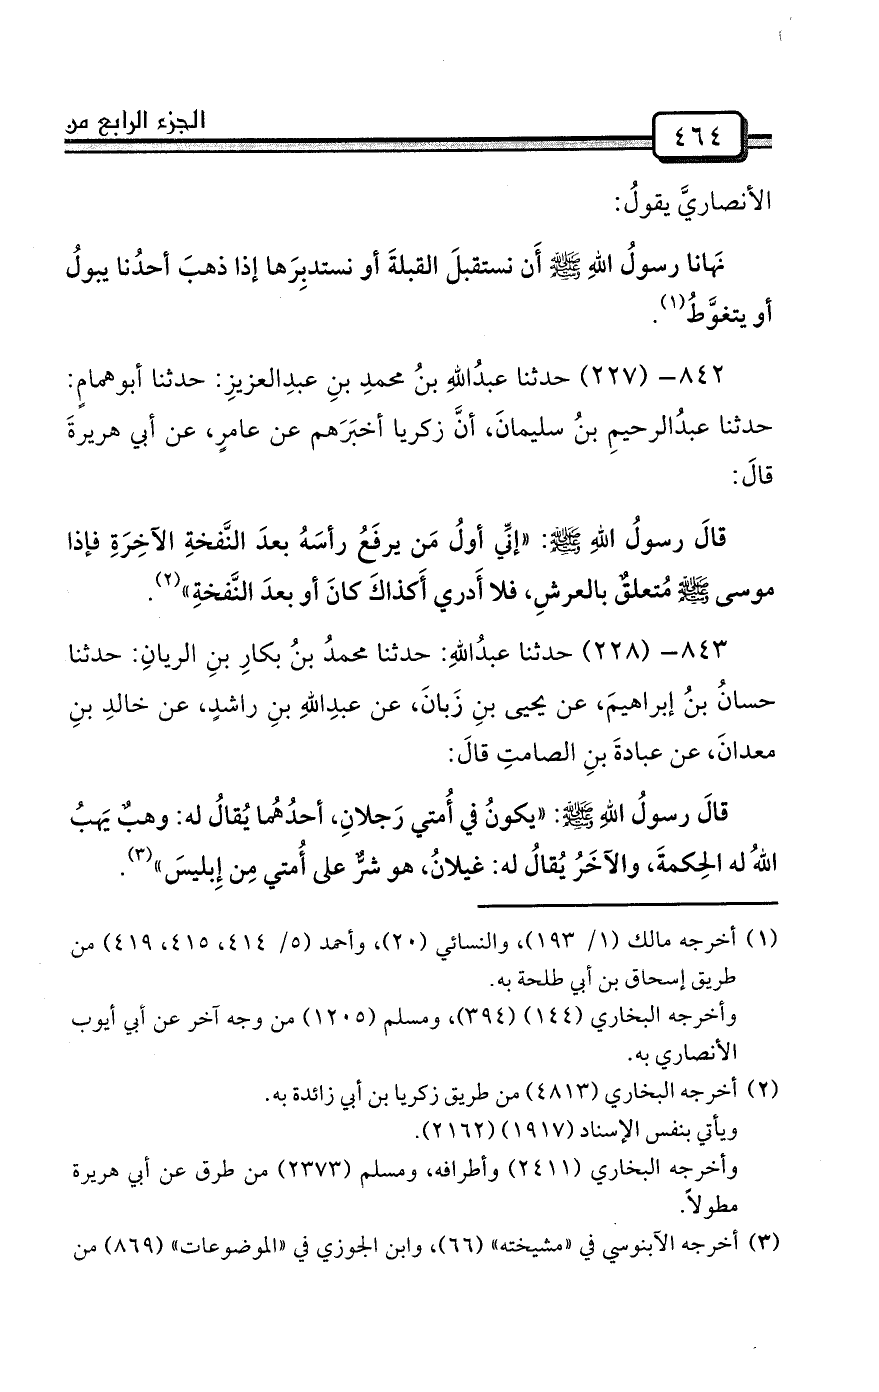 الجزء الرابع من
٤٦٤
الأنصاريَّ يقولُ:
نَهانا رسولُ اللهِ ﷺ أَن نستقبلَ القبلةَ أو نستدبِرَها إذا ذهبَ أحدُنا يبولُ
أو يتغوَّطُ(١).
٨٤٢- (٢٢٧) حدثنا عبدُاللهِ بنُ محمدِ بنِ عبدِالعزيزِ: حدثنا أبوهمامٍ:
حدثنا عبدُالرحيمِ بنُ سليمانَ، أنَّ زكريا أخبَرَهم عن عامرٍ، عن أبي هريرةَ
قالَ:
قالَ رسولُ اللهِ ﷺ: «إنِّي أولُ مَن يرفَعُ رأسَهُ بعدَ النَّفخةِ الآخِرَةِ فإذا
موسى ﷺ مُتعلقٌ بالعرشِ، فلا أَدري أَكذاكَ كانَ أو بعدَ النَّفخةِ»(٢).
٨٤٣- (٢٢٨) حدثنا عبدُاللهِ: حدثنا محمدُ بنُ بكارِ بنِ الريانِ: حدثنا
حسانُ بنُ إبراهيمَ، عن يحيى بنِ زَبانَ، عن عبدِاللهِ بنِ راشدٍ، عن خالدِ بنِ
معدانَ، عن عبادةَ بنِ الصامتِ قالَ:
قالَ رسولُ اللهِ ﷺ: «يكونُ في أُمتي رَجلانِ، أحدُهُما يُقالُ له: وهبٌ يَهبُ
اللهُ له الحِكمةَ، والآخَرُ يُقالُ له: غيلانُ، هو شرٌّ على أُمتي مِن إِبليسَ»(٣).
(١) أخرجه مالك (١/ ١٩٣)، والنسائي (٢٠)، وأحمد (٥/ ٤١٤، ٤١٥، ٤١٩) من
طريق إسحاق بن أبي طلحة به.
وأخرجه البخاري (١٤٤) (٣٩٤)، ومسلم (١٢٠٥) من وجه آخر عن أبي أيوب
الأنصاري به.
(٢) أخرجه البخاري (٤٨١٣) من طريق زكريا بن أبي زائدة به.
ويأتي بنفس الإسناد (١٩١٧) (٢١٦٢).
وأخرجه البخاري (٢٤١١) وأطرافه، ومسلم (٢٣٧٣) من طرق عن أبي هريرة
مطولاً.
(٣) أخرجه الآبنوسي في «مشيخته» (٦٦)، وابن الجوزي في «الموضوعات» (٨٦٩) من